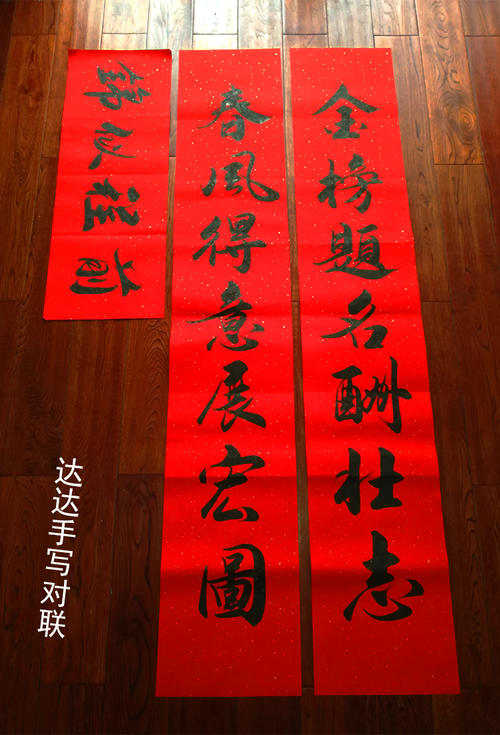 金榜題名酬壯志
春風得意展宏圖
前程似錦
达达手写对联